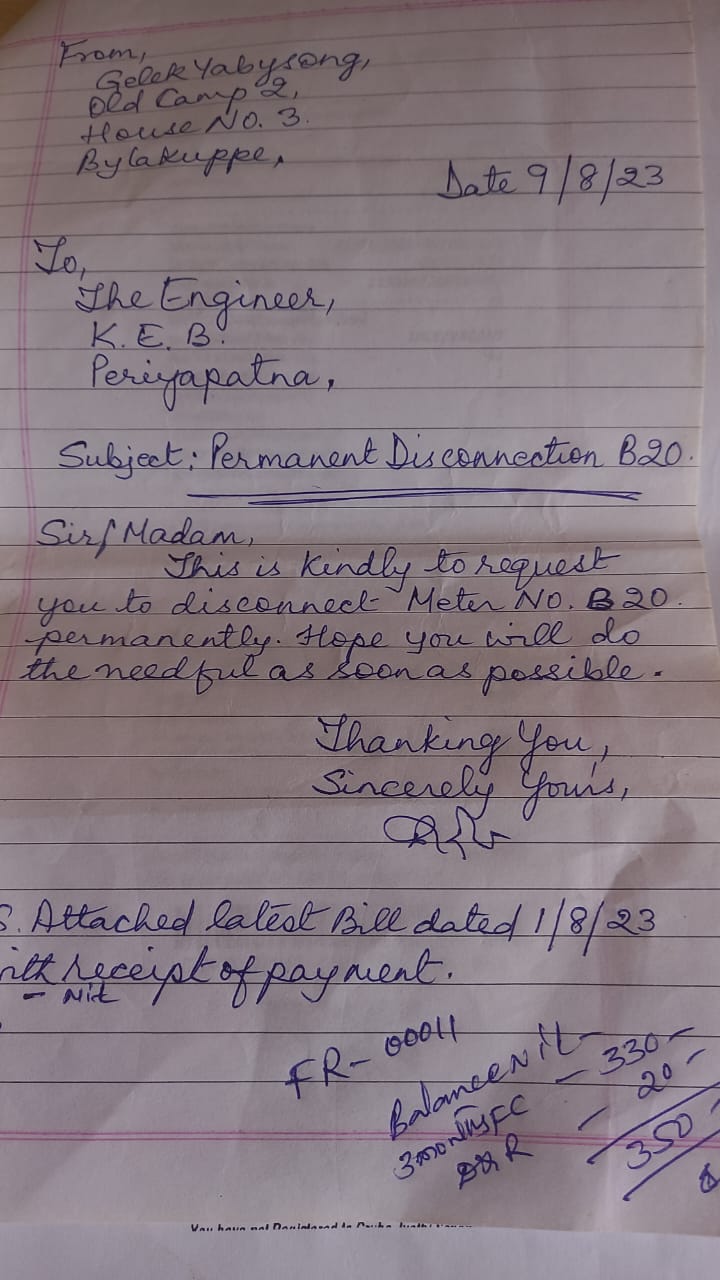 From,
Gelek Yabysong,
Old Camp 2,
House No. 3.
Bylakuppe,
Date 9/8/23
To,
The Engineer,
K. E. B.
Periyapatna,
Subject: Permanent Disconnection B20.
Sir/Madam,
This is kindly to request
you to disconnect Meter No. B20.
permanently. Hope you will do
the needful as soon as possible.
Thanking You,
Sincerely Yours,
S. Attached latest Bill dated 1/8/23
ith receipt of payment.
- Nil
FR- 00011
Balance Nil -
3 months FC - 330 -
R - 20 -
350
You have not Registered